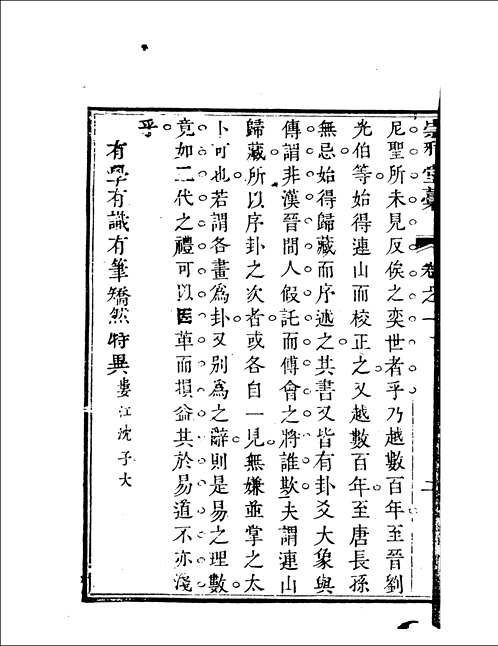 崇雅堂藁 卷之一 二
尼聖所未見反俟之奕世者乎乃越數百年至晉劉
光伯等始得連山而校正之又越數百年至唐長孫
無忌始得歸藏而序述之其書又皆有卦爻大象與
傳謂非漢晉間人假託而傅會之將誰欺夫謂連山
歸藏所以序卦之次者或各自一見無嫌並掌之太
卜可也若謂各畫為卦又別為之辭則是易之理數
竟如二代之禮可以因革而損益其於易道不亦淺
乎
有學有識有筆矯然特異婁江沈子大